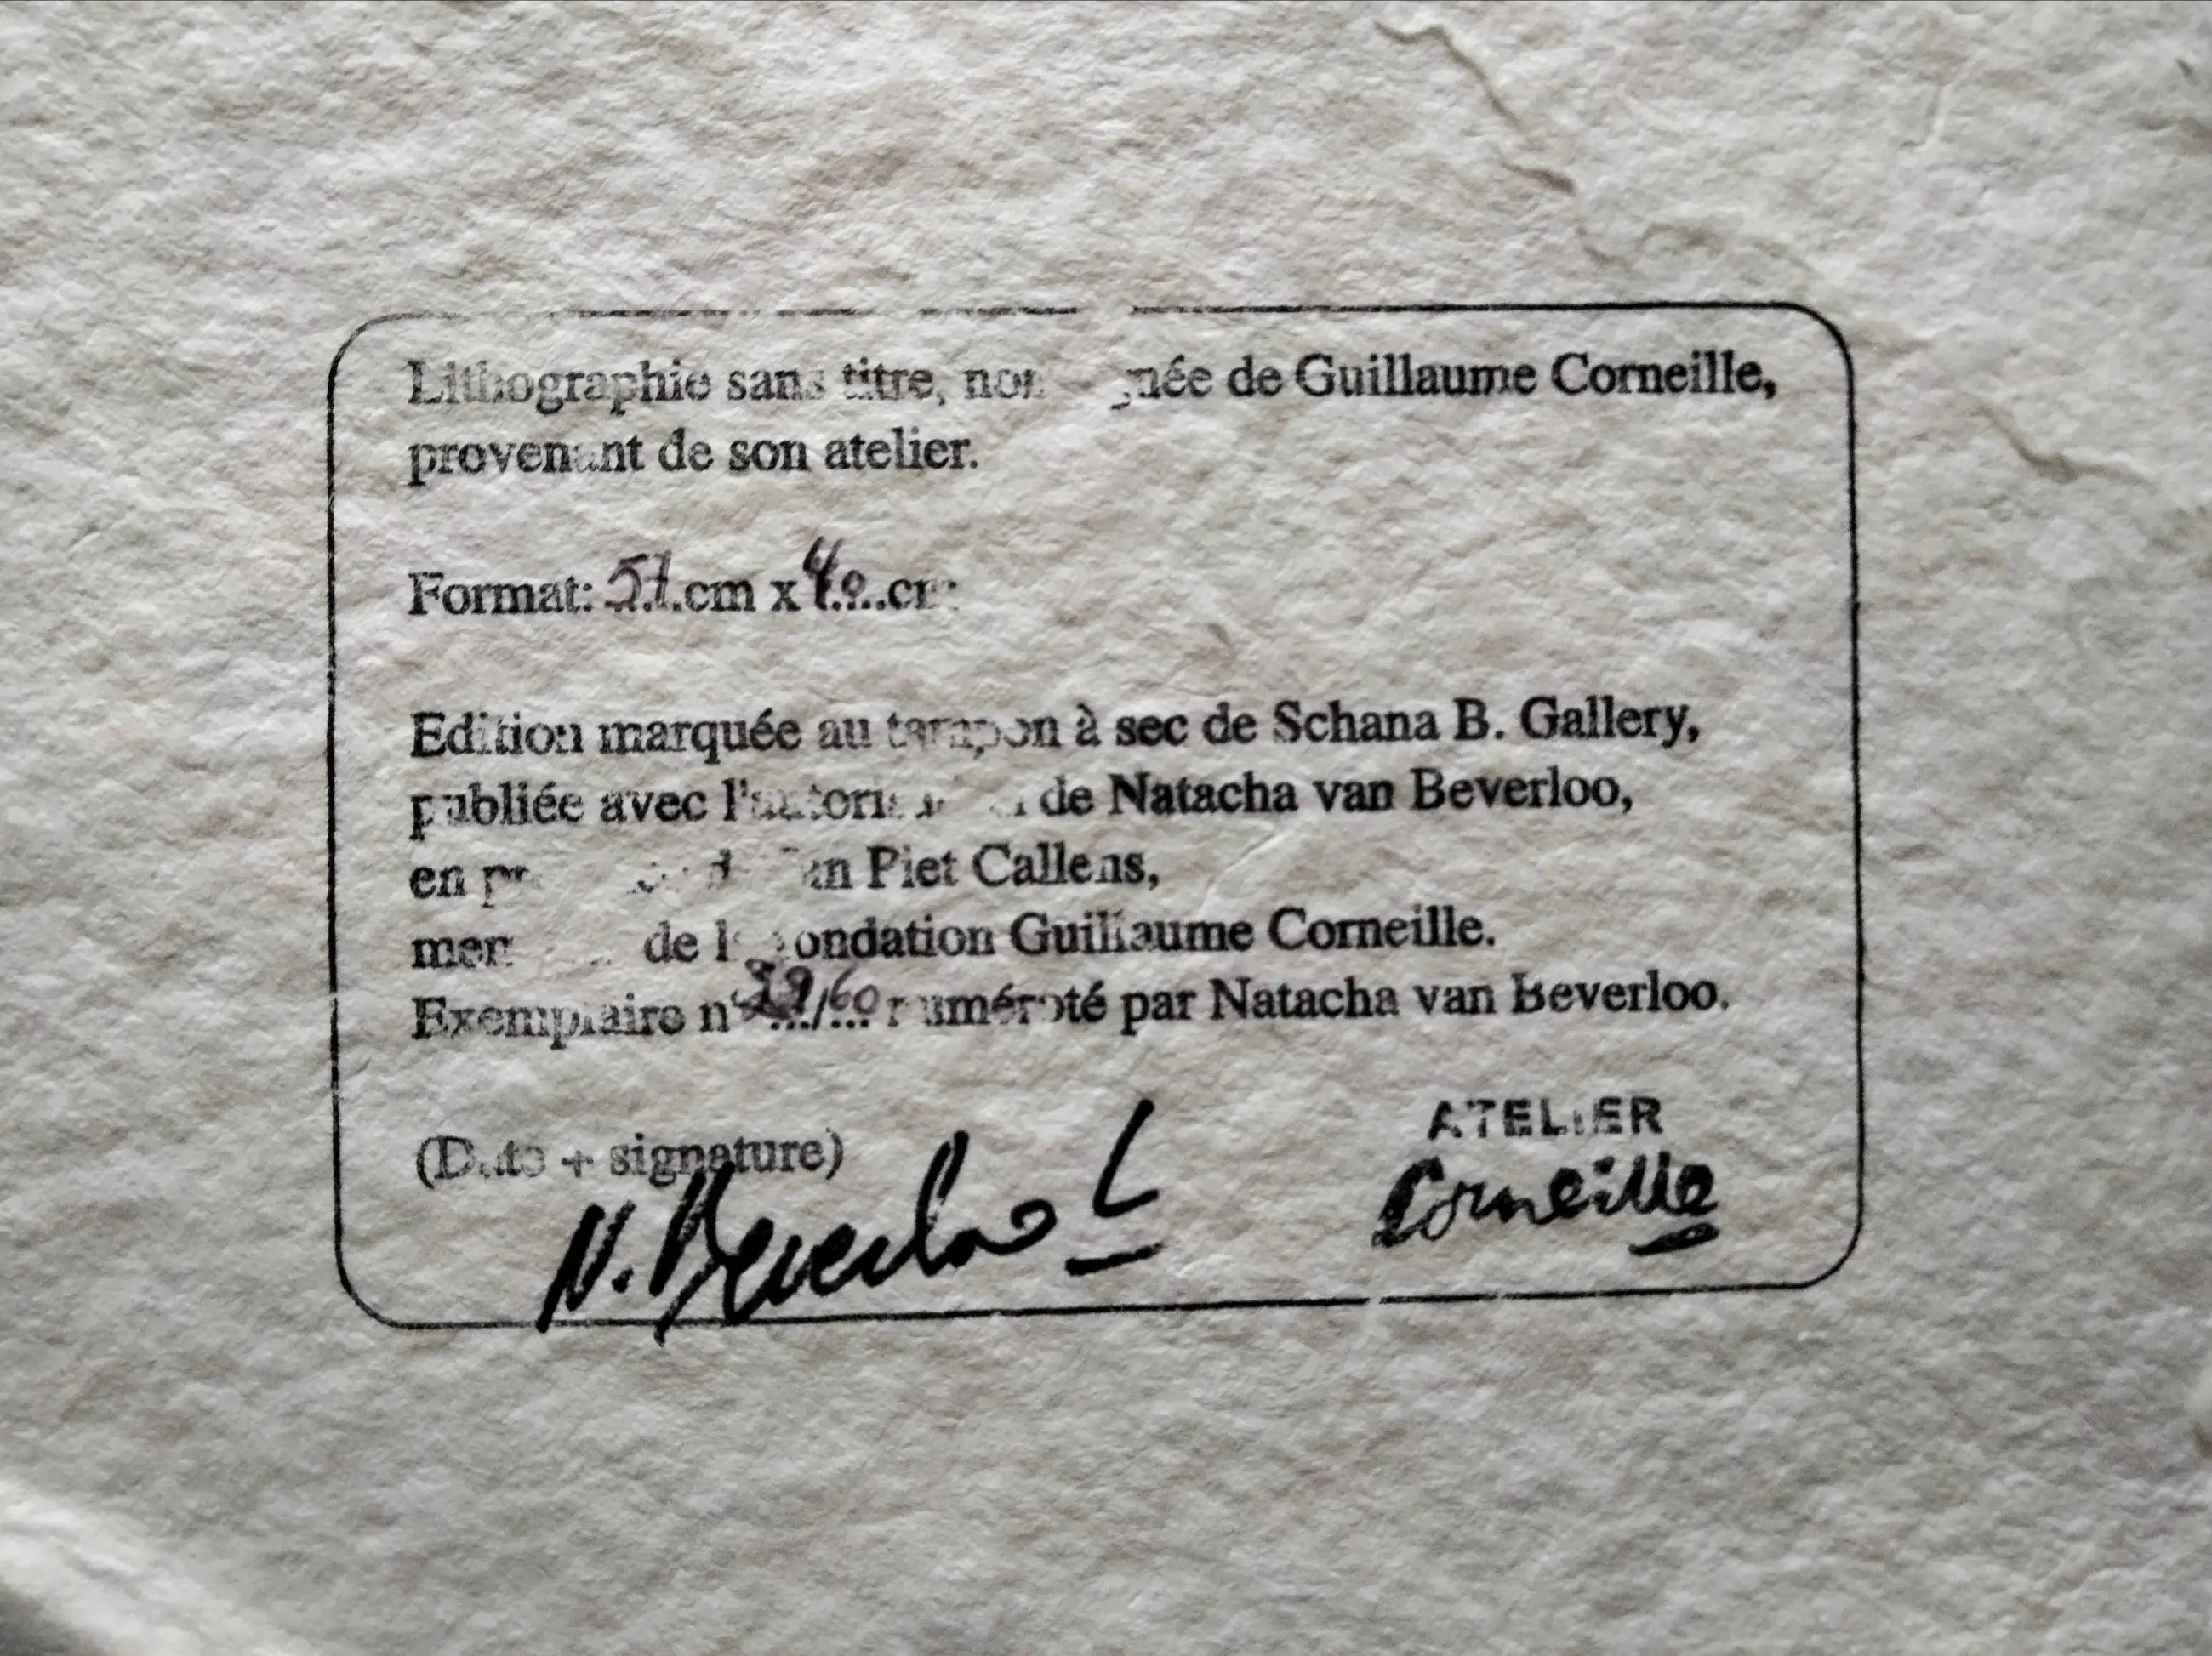 Lithographie sans titre, non née de Guillaume Corneille,
provenant de son atelier.
Format: 57 cm x 40 cm
Edition marquée au tampon à sec de Schana B. Gallery,
publiée avec l'autorisation de Natacha van Beverloo,
en Piet Callens,
de la Fondation Guillaume Corneille.
Exemplaire n° /60 numéroté par Natacha van Beverloo.
(Date + signature)
N. Beverloo
ATELIER
Corneille